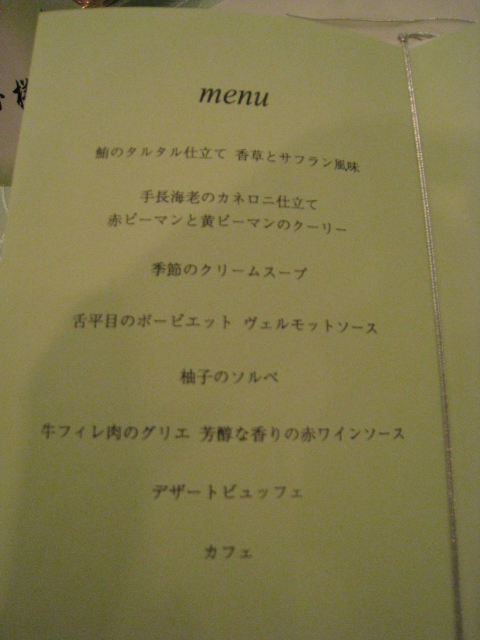 menu
鮪のタルタル仕立て 香草とサフラン風味
手長海老のカネロニ仕立て
赤ピーマンと黄ピーマンのクーリー
季節のクリームスープ
舌平目のポーピエット ヴェルモットソース
柚子のソルベ
牛フィレ肉のグリエ 芳醇な香りの赤ワインソース
デザートビュッフェ
カフェ